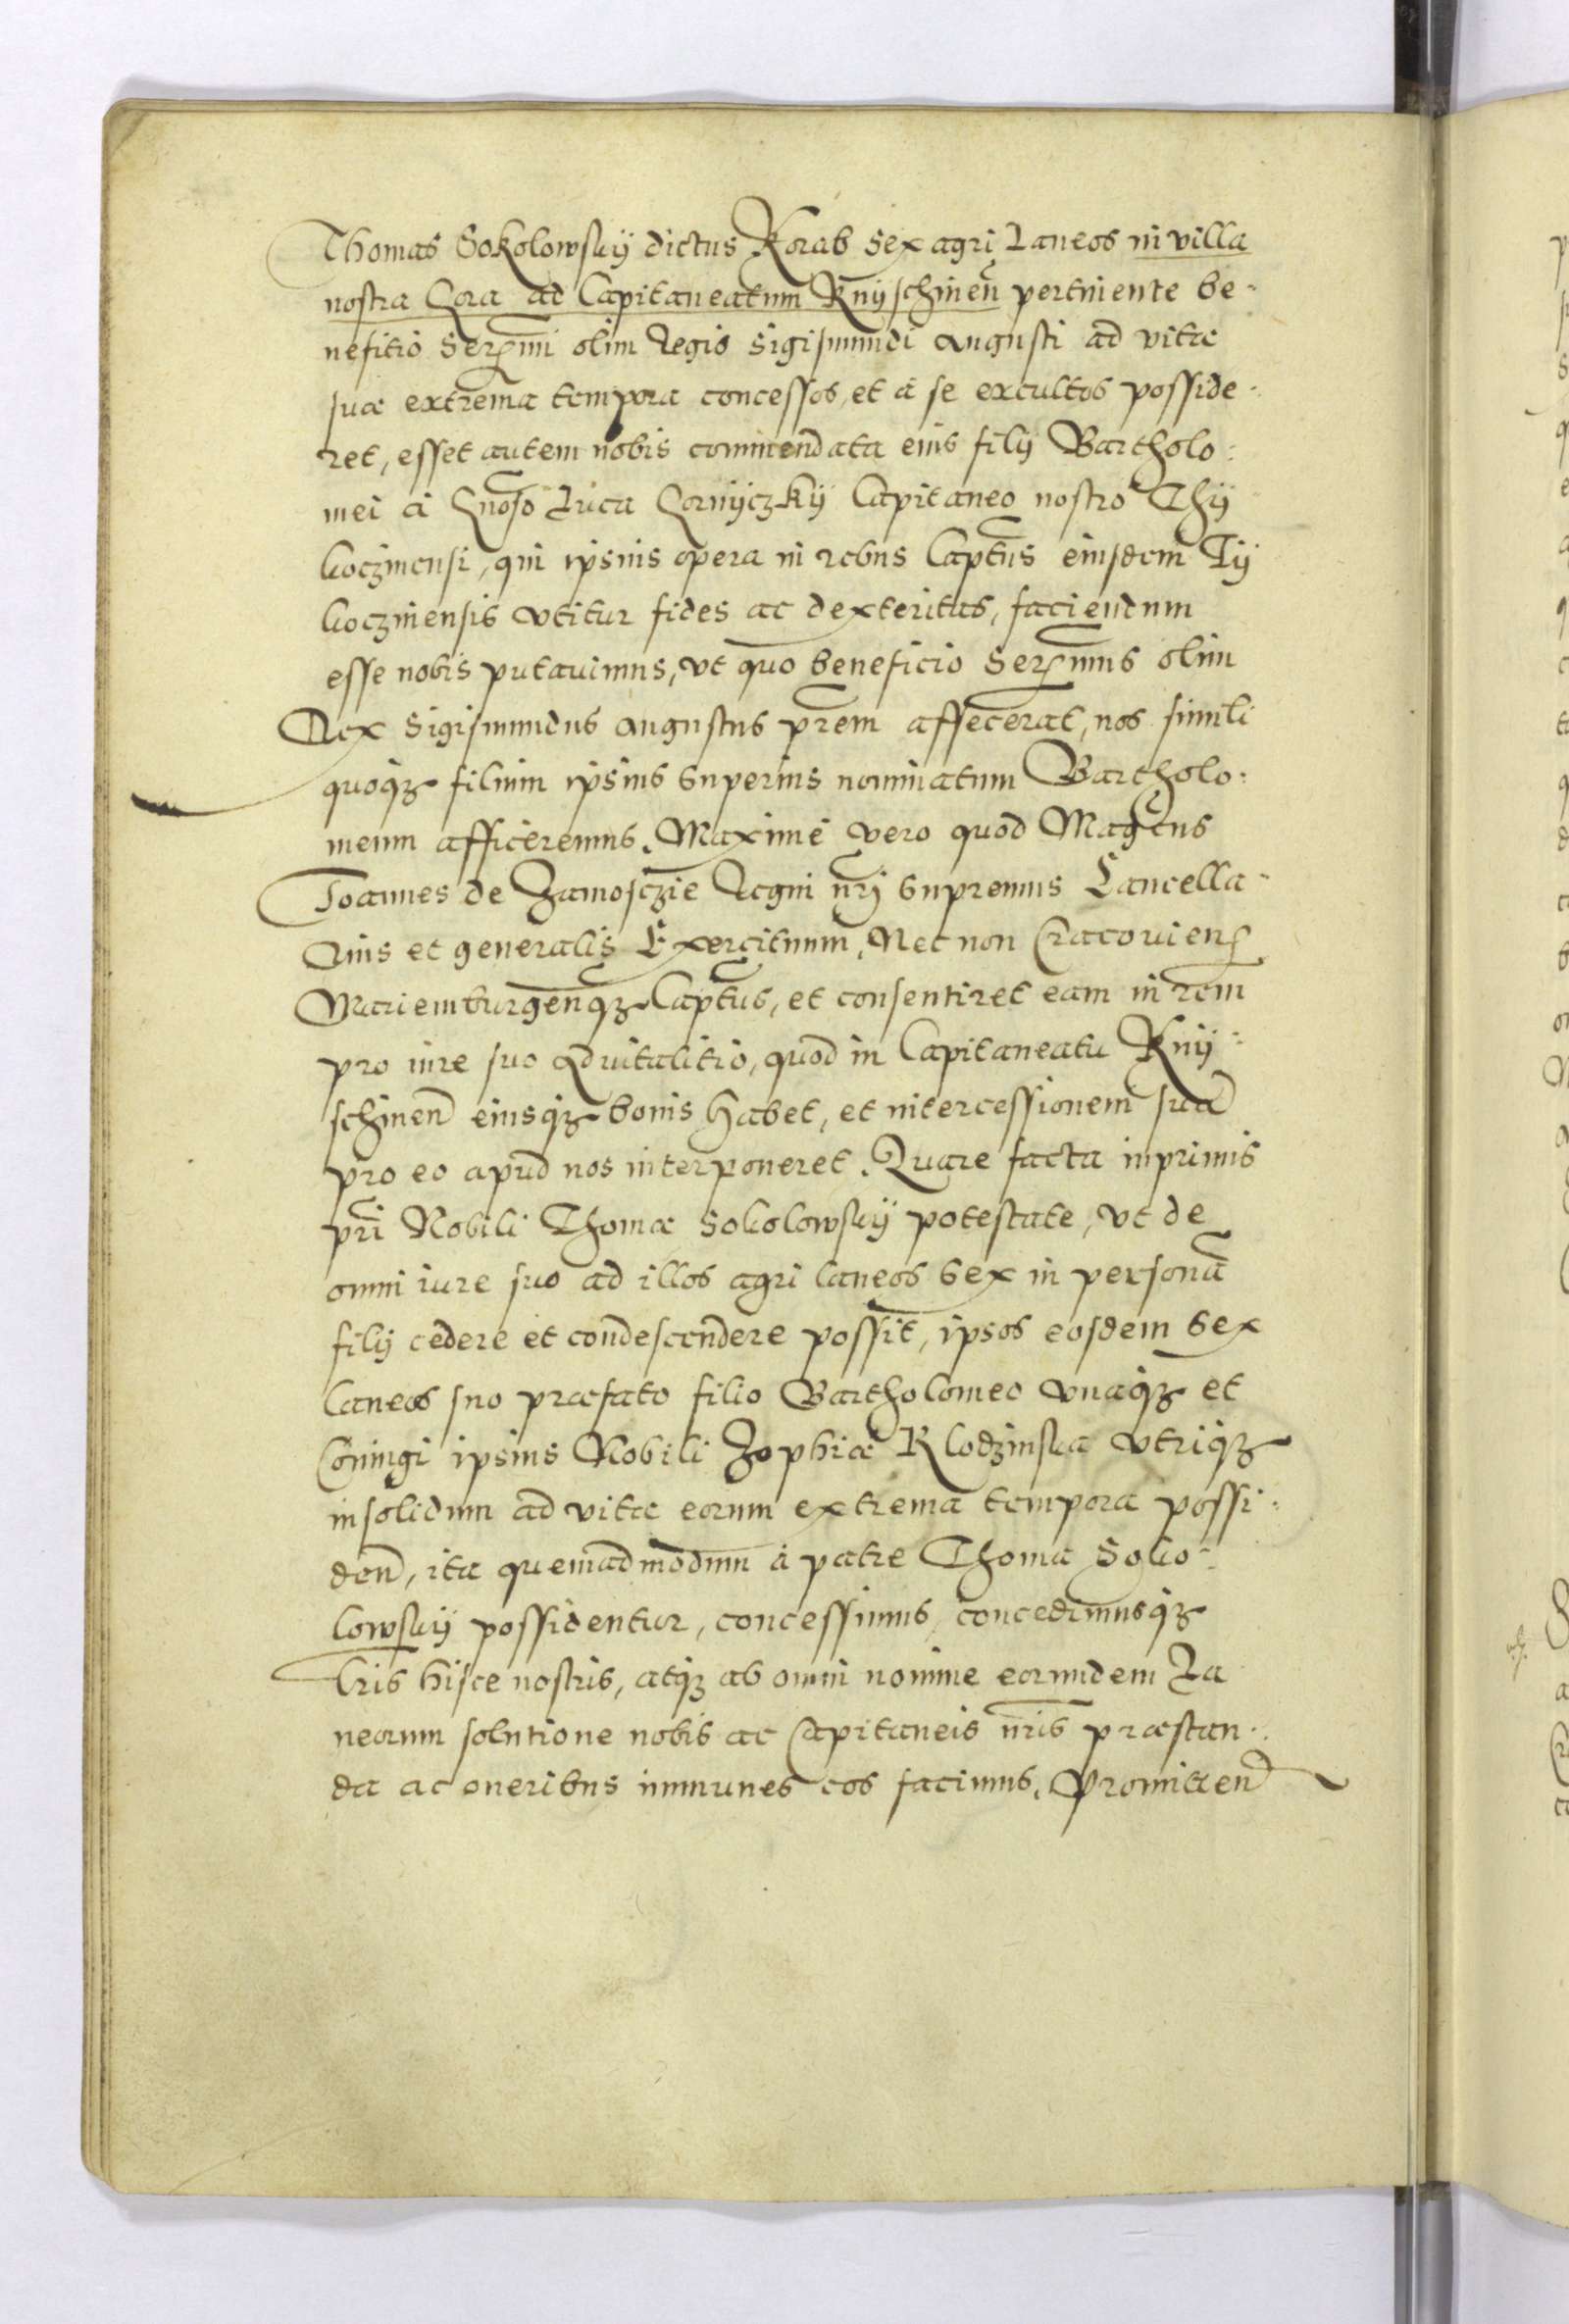 Thomas Sokolowskÿ dictus Korab sex agri Laneos in villa
nostra Gora ad Capitaneatum Knÿschinen̄ pertinente be-
nefitio Serͫmi olim Regis Sigismundi Augusti ad vitæ
suæ extrema tempora concessos, et à se excultos posside-
ret, esset autem nobis commendata eius filÿ Bartholo:
mei à Gnōso Luca Gornÿczkÿ Capitaneo nostro Thÿ
koczinensi, qui ipsius opera in rebus Captūs eiusdem Tÿ
koczinensis vtitur fides ac dexteritas, faciendum
esse nobis putauimus, vt quo beneficio Serͫmus olim
Rex Sigismundus Augustus pr̄em affecerat, nos simili
quoqȝ filium ipsius superius nominatum Bartholo:
meum afficeremus. Maxime vero quod Maḡcus
Ioannes de Zamosczie Regni nr̄i supremus Cancella-
rius et generalis Exercituum, Nec non Cracouien̄
Mariemburgen̄qȝ Captūs, et consentiret eam in rem
pro iure suo aduitalitio, quod in Capitaneatu Knÿ-
schinen̄ eiusqȝ bonis habet, et intercessionem suā
pro eo apud nos interponeret. Quare facta inprimis
pr̄i Nobili Thomæ Sokolowskÿ potestate, vt de
omni iure suo ad illos agri laneos sex in personā
filÿ cedere et condescendere possit, ipsos eosdem sex
laneos suo præfato filio Bartholomeo vnaqȝ et
Coniugi ipsius Nobili Zophiæ Klodzinska vtriqȝ
insolidum ad vitæ eorum extrema tempora possi:
den̄, ita quemadmodum à patre Thoma Soko-
lowskÿ possidentur, concessimus, concedimusqȝ
Lr̄is hisce nostris, atqȝ ab omni nomine eorundem La
neorum solutione nobis ac Capitaneis nr̄is præstan-
da ac oneribus immunes eos facimus. Promitten̄